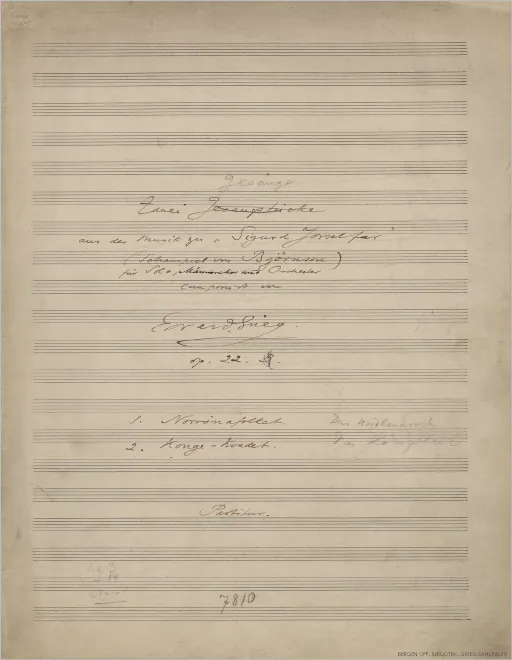 Gesänge
Zwei Gesangstücke
aus der Musik zu „Sigurd Jorsalfar"
(Schauspiel von Björnson)
für Solo, Männerchor und Orchester
componirt von
Edvard Grieg.
op. 22.
1. Norrönafolket Das Nordlandvolk
2. Konge-Kvadet. Das Königslied
Partitur.
7810
BERGEN OFF. BIBLIOTEK, GRIEG-SAMLINGEN